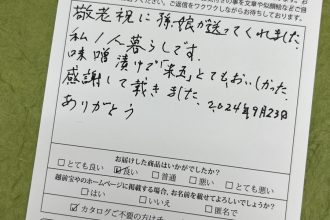 ご返信をワクワクしながらお待ちしております。
敬老祝に孫娘が送ってくれました。
私1人暮らしです。
味噌漬けで「来五」とても、おいしかった。
感謝して戴きました。2024年9月23日
ありがとう
お届けした商品はいかがでしたか?
□とても良い ☑良い □普通 □悪い □とても悪い
越前宝やのホームページに掲載する場合、お名前を載せてよろしいでしょうか?
□はい □いいえ □匿名で
☑カタログご不要の方はチ